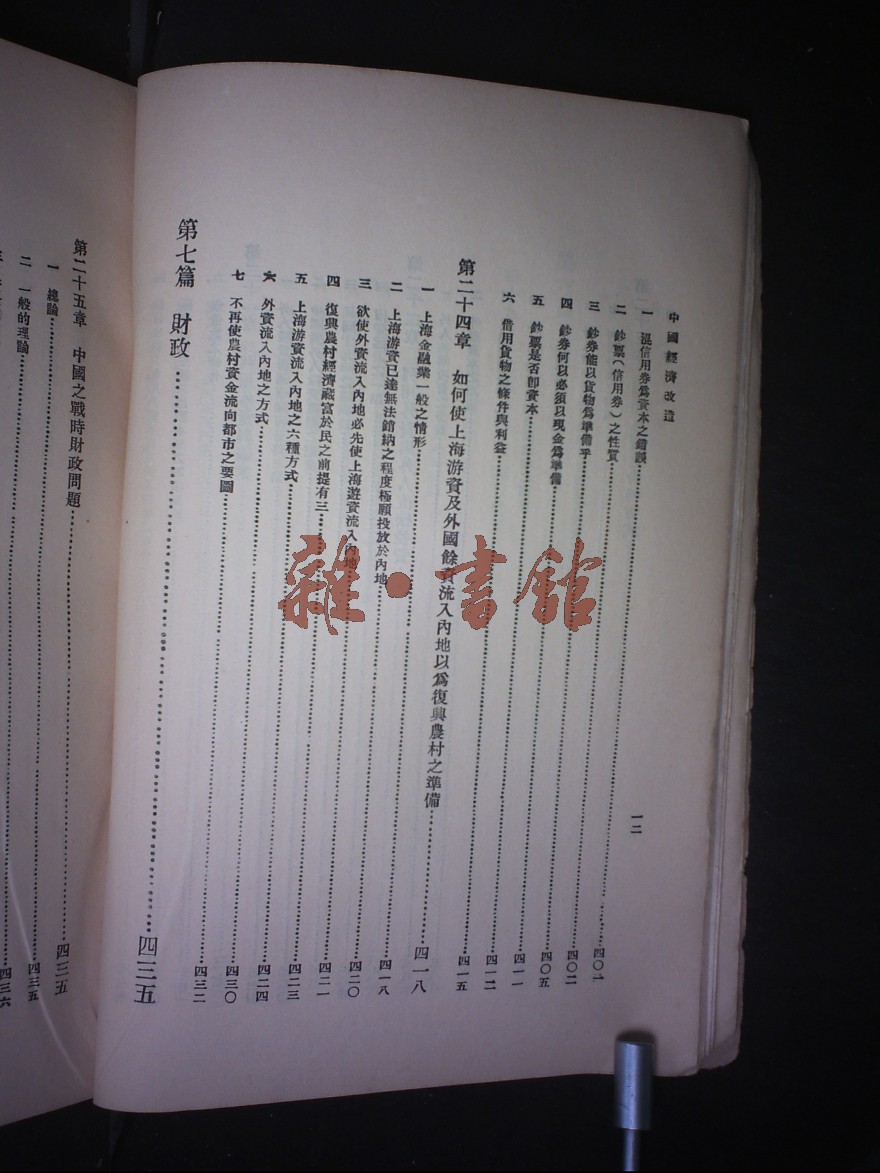 中國經濟改造 一二
一 混信用券為資本之錯誤……四〇一
二 鈔票(信用券)之性質……四〇二
三 鈔券能以貨物為準備乎……四〇五
四 鈔券何以必須以現金為準備……四一一
五 鈔票是否卽資本……四一二
六 借用貨物之條件與利益……四一五
第二十四章 如何使上海游資及外國餘資流入內地以為復興農村之準備……四一八
一 上海金融業一般之情形……四一八
二 上海游資已達無法銷納之程度極願投放於內地……四二〇
三 欲使外資流入內地必先使上海遊資流入內地……四二一
四 復興農村經濟藏富於民之前提有三……四二三
五 上海游資流入內地之六種方式……四二四
六 外資流入內地之方式……四三〇
七 不再使農村資金流向都市之要圖……四三二
第七篇 財政……四三五
第二十五章 中國之戰時財政問題……四三五
一 總論……四三五
二 一般的理論……四三六
雜·書館